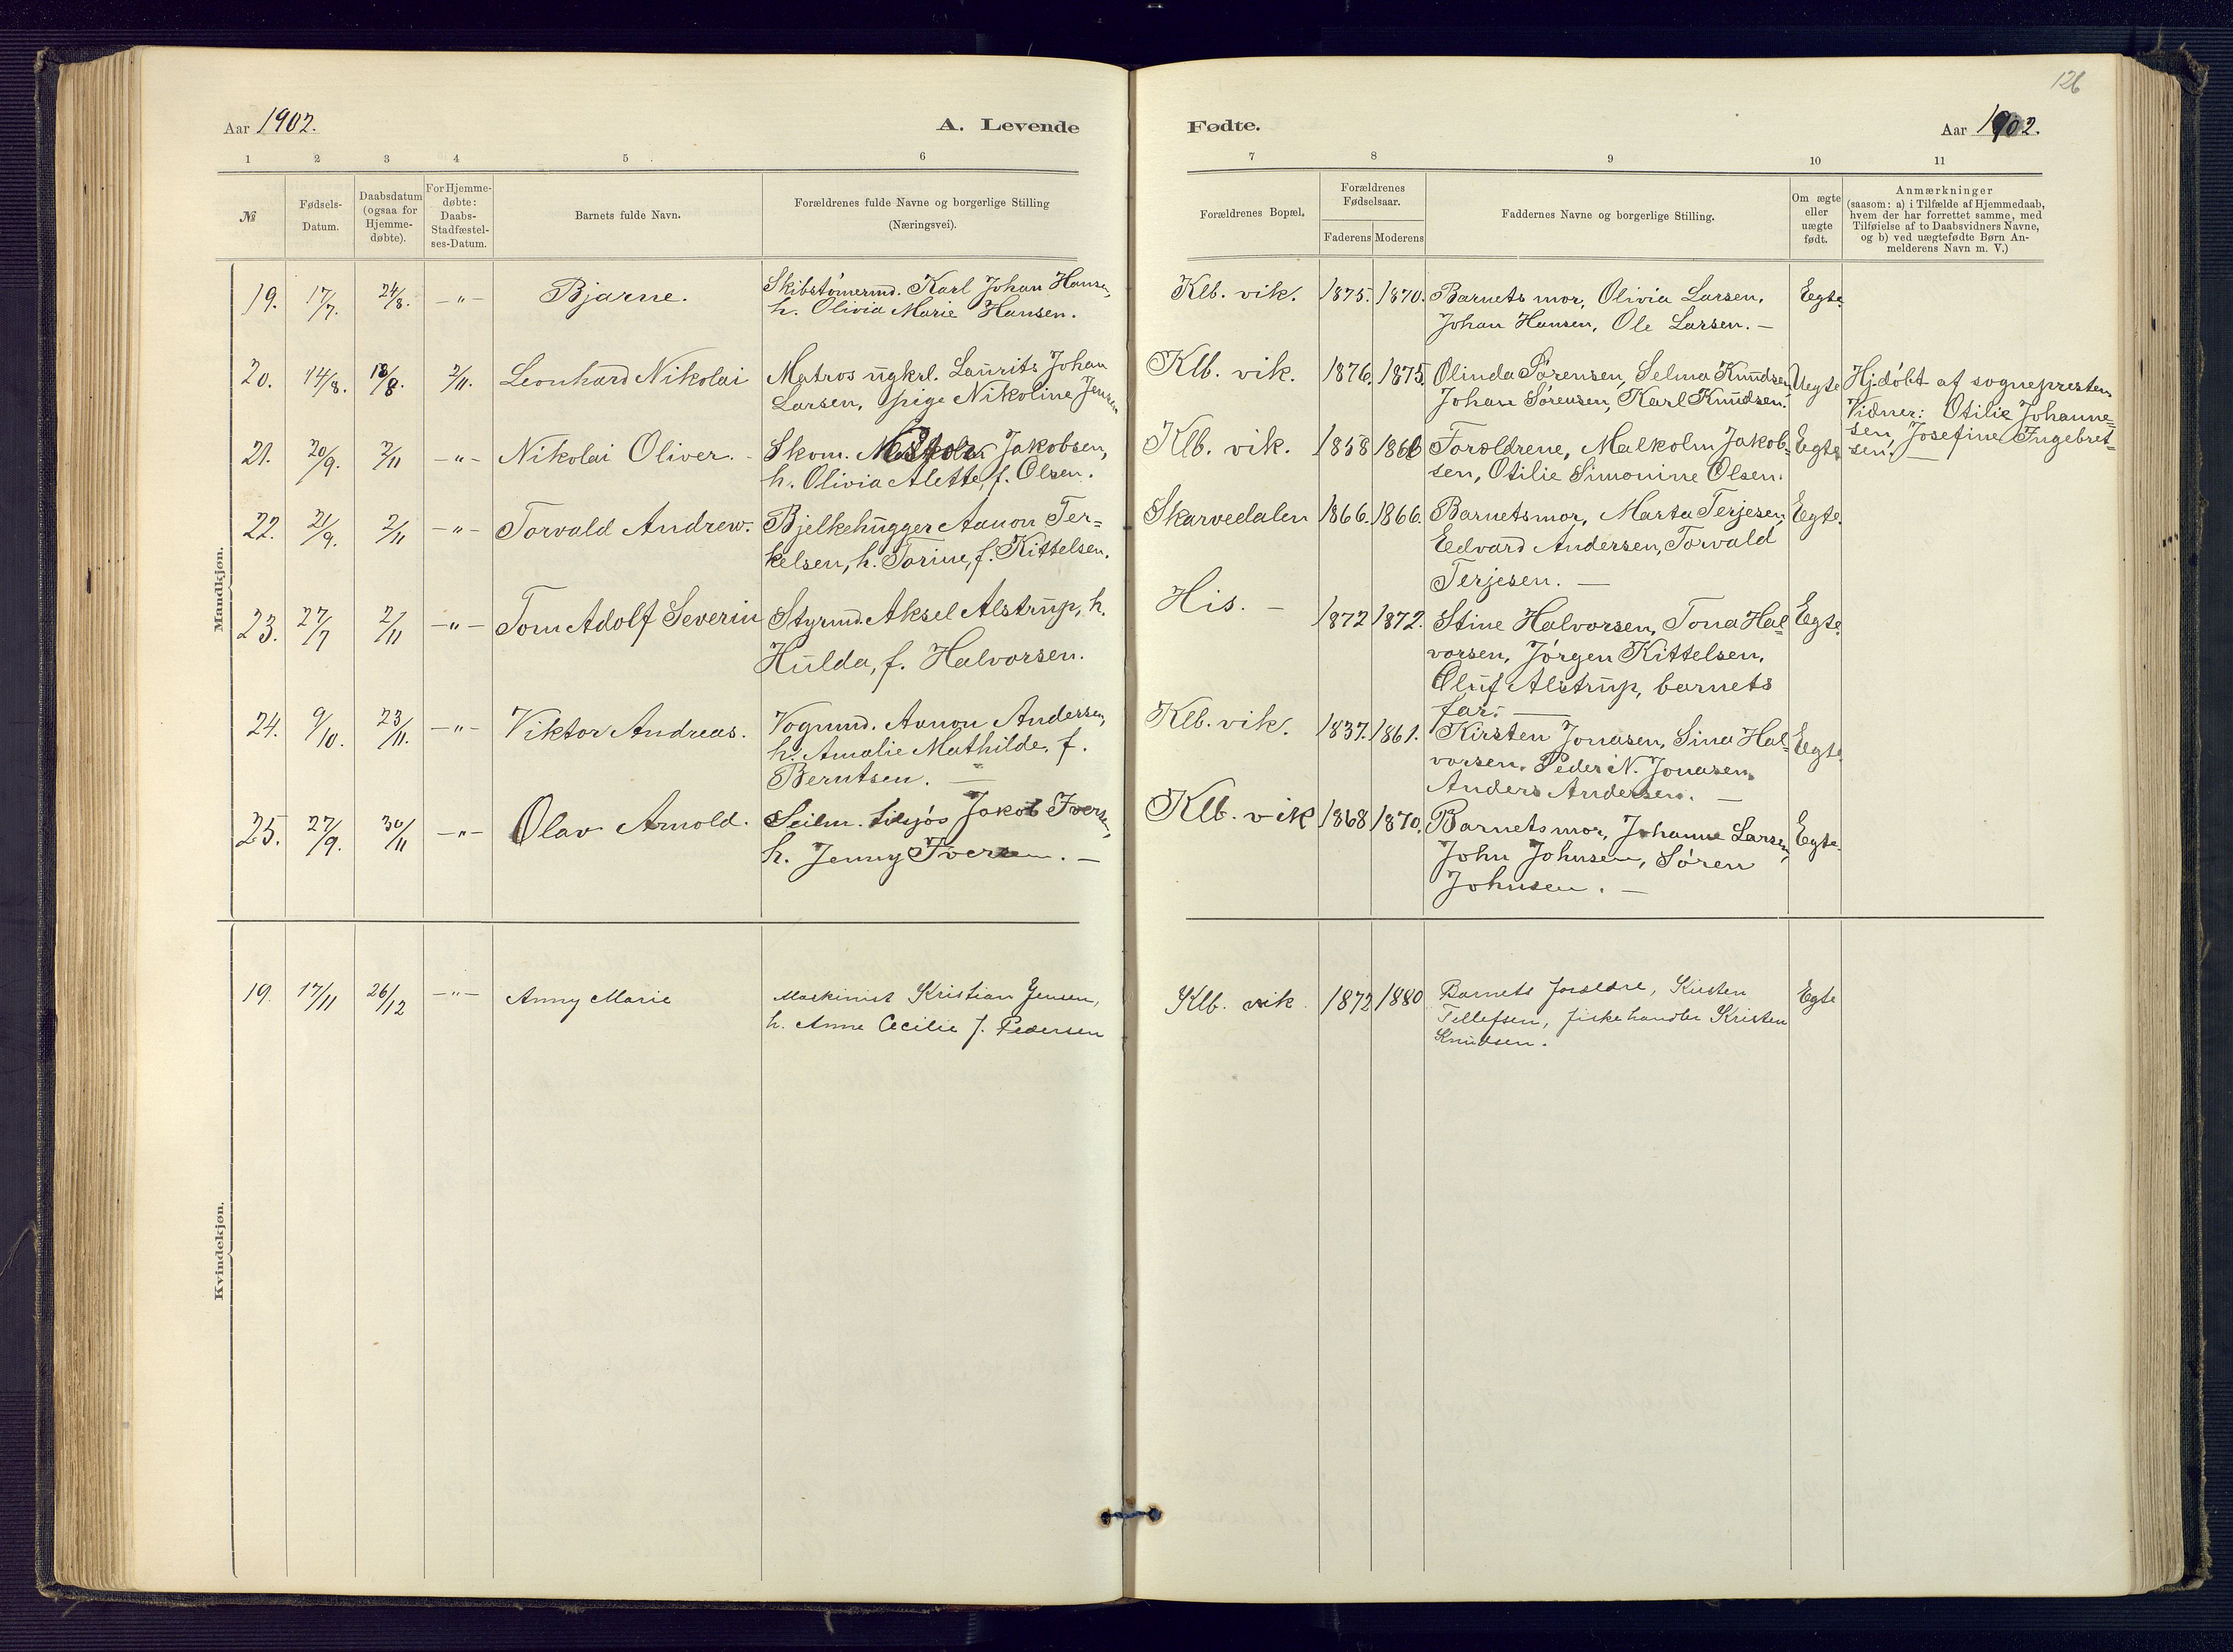 126
Aar 1902.
A. Levende
Fødte.
Aar 1902.
1 2 3 4 5 6
7 8 9 10 11
№
Fødsels-
Datum.
Daabsdatum
(ogsaa for
Hjemme-
døbte).
For Hjemme-
døbte:
Daabs-
Stadfæstel-
ses-Datum.
Barnets fulde Navn.
Forældrenes fulde Navne og borgerlige Stilling
(Næringsvei).
Forældrenes Bopæl.
Forældrenes
Fødselsaar.
Faderens Moderens
Faddernes Navne og borgerlige Stilling.
Om ægte
eller
uægte
født.
Anmærkninger
(saasom: a) i Tilfælde af Hjemmedaab,
hvem der har forrettet samme, med
Tilføielse af to Daabsvidners Navne,
og b) ved uægtefødte Børn An-
melderens Navn m. V.)
Mandkjøn.
19. 17/7. 24/8. -"- Bjarne.
Skibstømermd. Karl Johan Hansen,
h. Olivia Marie Hansen.
Klb. vik. 1875. 1870.
Barnets mor, Olivia Larsen,
Johan Hansen, Ole Larsen. -
Egte.
20. 14/8. 18/8. 2/11. Leonhard Nikolai
Matros ugkrl. Laurits Johan
Larsen, pige Nikoline Jensen
Klb. vik. 1876. 1875.
Olinda Sørensen, Selma Knudsen,
Johan Sørensen, Karl Knudsen.
Uegte
Hj.døbt af sognepresten
Vidner: Otilie Johanne=
sen, Josefine Ingebret=
sen. -
21. 20/9. 2/11 -"- Nikolai Oliver. -
Skom. Jakobsen,
h. Olivia Alette, f. Olsen.
Klb. vik. 1858
Forældrene, Malkolm Jakob=
sen, Otilie Simonine Olsen.
Egte
22. 21/9. 2/11 -"- Torvald Andrew.
Bjelkehugger Aanon Ter=
kelsen, h. Torine, f. Kittelsen.
Skarvedalen 1866. 1866.
Barnets mor, Marta Terjesen,
Edvard Andersen, Torvald
Terjesen. -
Egte.
23. 27/7 2/11 -"- Tom Adolf Severin
Styrmd. Aksel Alstrup, h.
Hulda, f. Halvorsen.
His. - 1872 1872.
Stine Halvorsen, Tona Hal=
vorsen, Jørgen Kittelsen,
Oluf Alstrup, barnets
far. -
Egte.
24. 9/10. 23/11. -"- Viktor Andreas.
Vognmd. Aanon Andersen,
h. Amalie Mathilde, f.
Berntsen. -
Klb. vik. 1837. 1861.
Kirsten Jonasen, Sina Hal=
vorsen. Peder N. Jonasen,
Anders Andersen. -
Egte.
25. 27/9. 30/11 -"- Olav Arnold.
Seilm. tilsjøs Jakob Iversen,
h. Jenny Iversen. -
Klb. vik 1868 1870.
Barnets mor, Johanne Larsen,
John Johnsen, Søren
Johnsen. -
Egte.
Kvindekjøn.
19. 17/11 26/12 -"- Anny Marie
Maskinist Kristian Jensen,
h. Anne Cecilie f. Pedersen
Klb. vik 1872 1880
Barnets forældre, Kirsten
Tellefsen, fiskehandler Kristen
Knudsen.
Egte